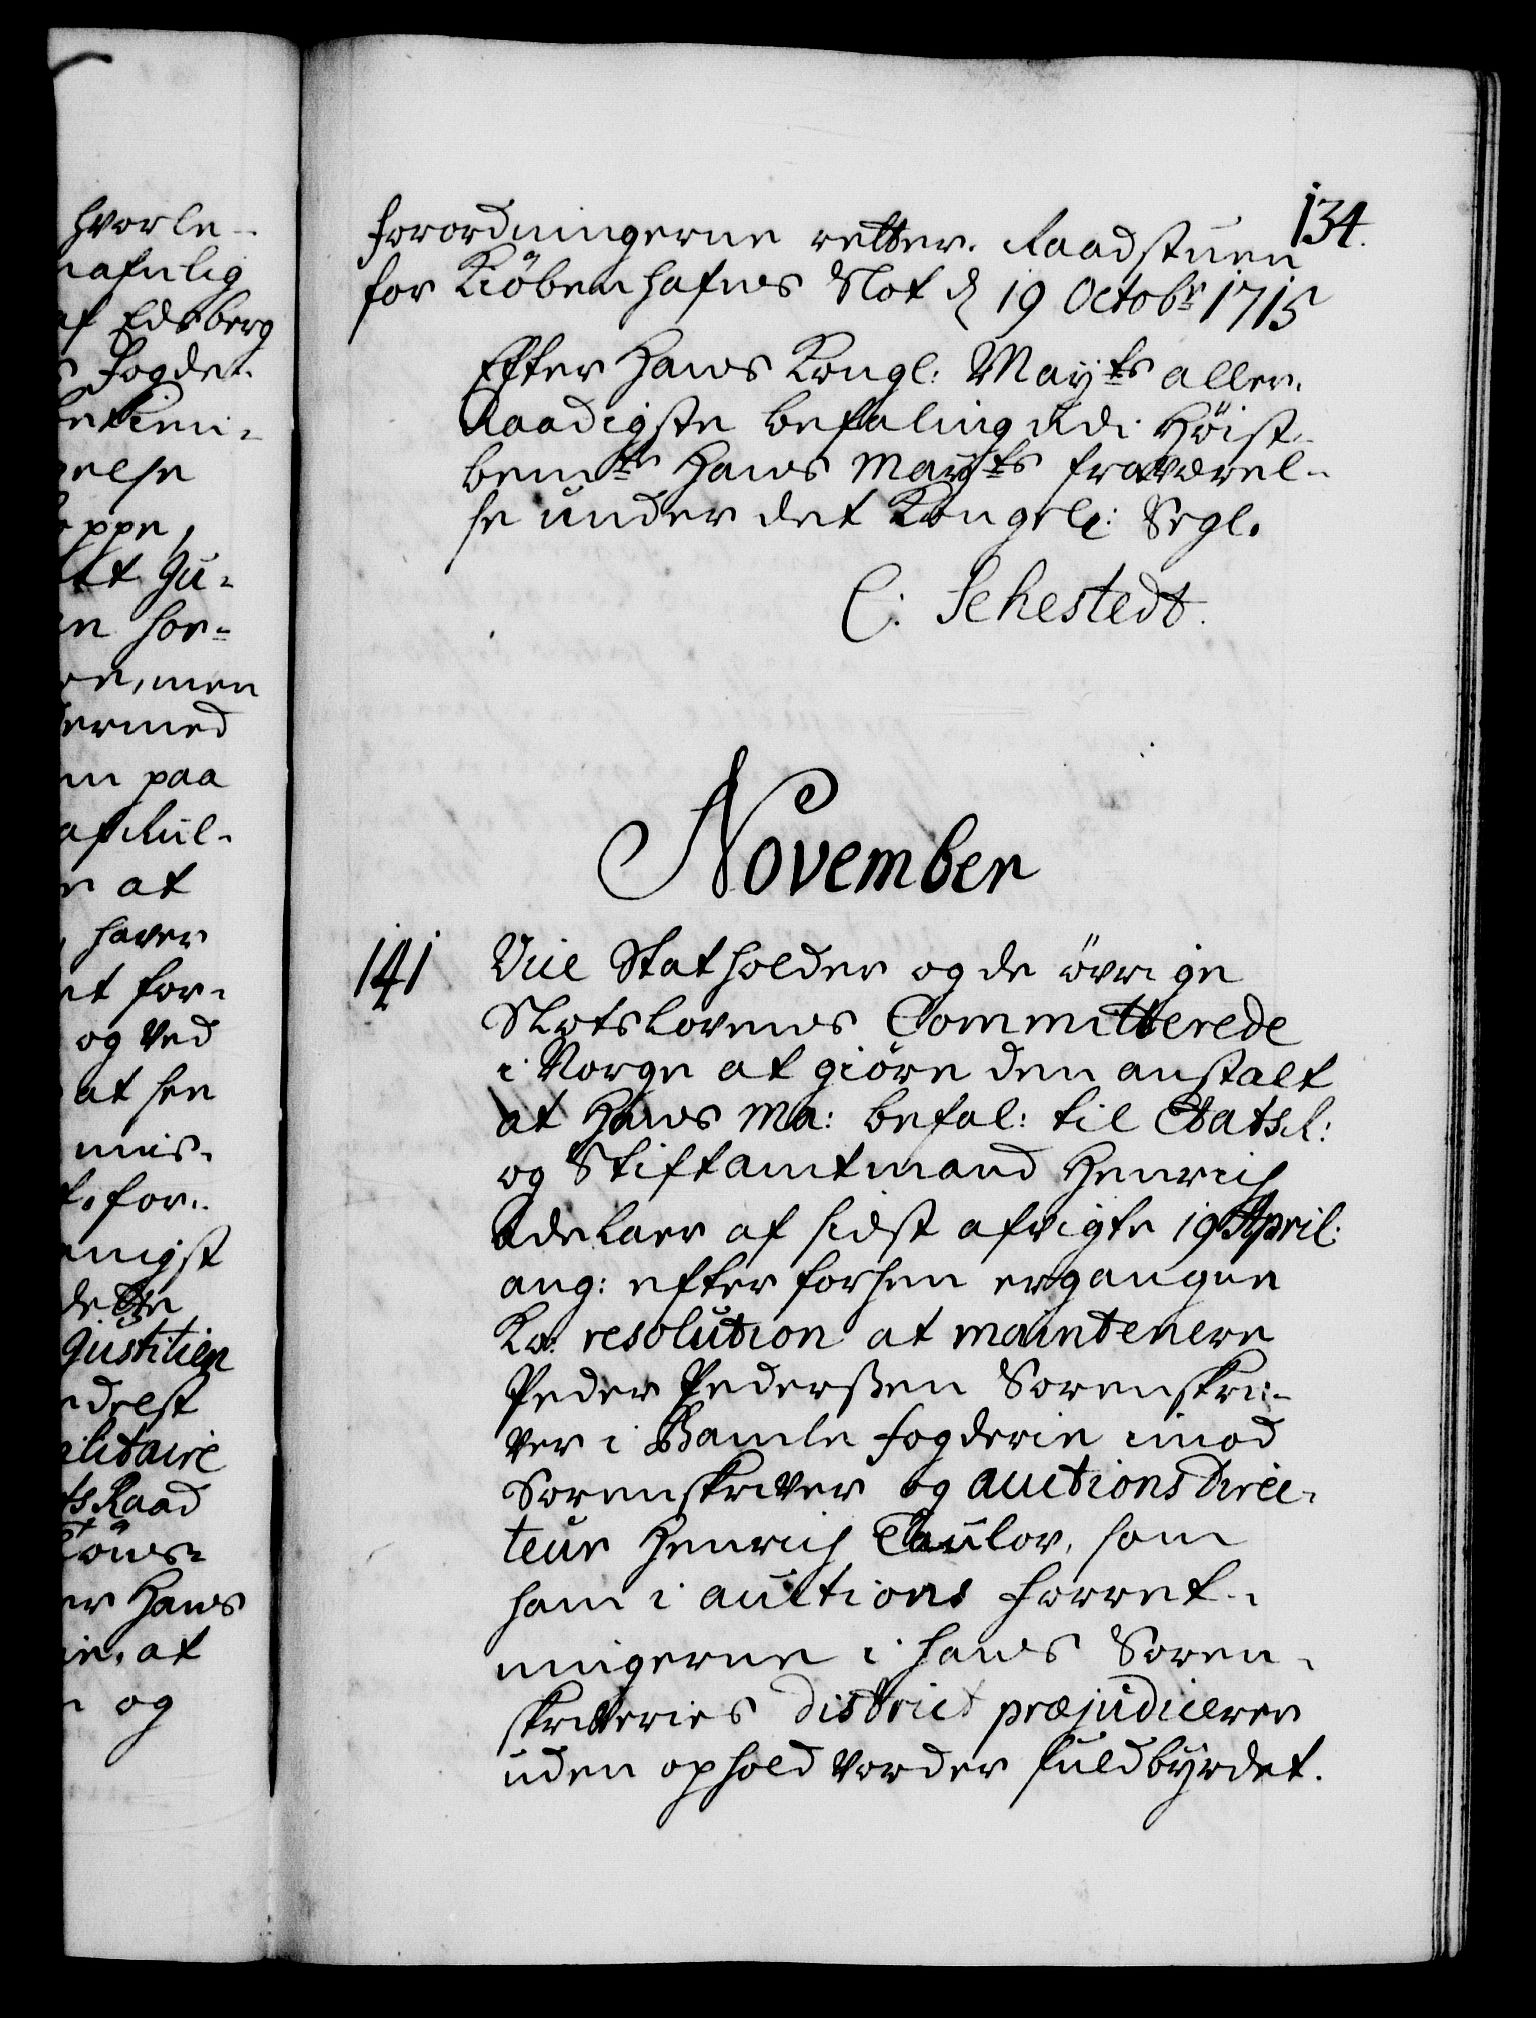 hvorle-
nafnlig
af Edsberg
Fogder.
pelse
oppe,
at Ju-
en her-
re, men
ermed
en paa
af Kul-
er at
haver
et for-
og ved
at see
mis-
t. for-
enigst
dette
Justitien
ndelst
militaire
ts Raad
Tøns-
er Hans
ie, at
og
134.
forordningerne retter. Raadstuen
for Kiöbenhafns Slot d 19 Octobr 1715
Efter Hans Kongl: Mayts aller-
Naadigste befaling udi Höist-
bemte Hans Mayts fraværel-
se under det Kongel: Segl.
C: Sehestedt.
November
141 Vice Statholder og de övrige
Slotslovens Committerede
i Norge at giöre den anstalt
at Hans Ma: befal: til EtatsR:
og Stiftamtmand Henrich
Adelaer af sidst afvigte 19 April:
ang: efter forhen ergangen
Ko: resolution at maintenere
Peder Pederßen Sorenskri-
ver i Bamle fogderie imod
Sorenskriver og auctions direc-
teur Henrich Taulov, som
ham i auctions forret-
ningerne i hans Soren-
skriveries district præjudicerer
uden ophold vorder fuldbyrdet.